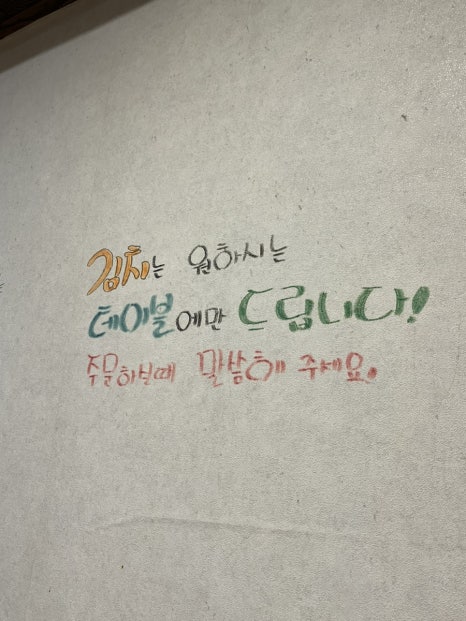 김치는 원하시는
테이블에만 드립니다!
주문하실때 말씀해 주세요.